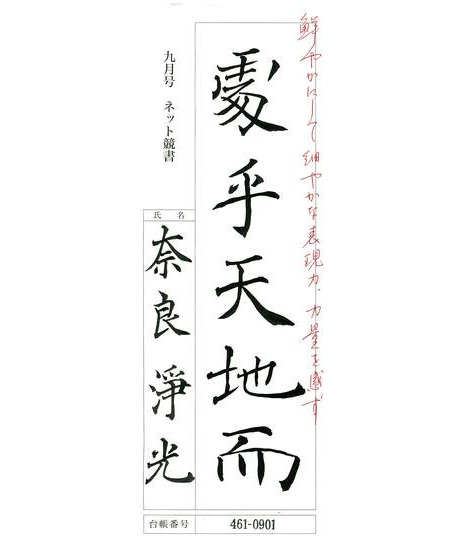 鮮やかにして細やかな表現力、力量を感ず
處乎天地而
九月号 ネット競書
氏 名
奈良淨光
台帳番号
461-0901